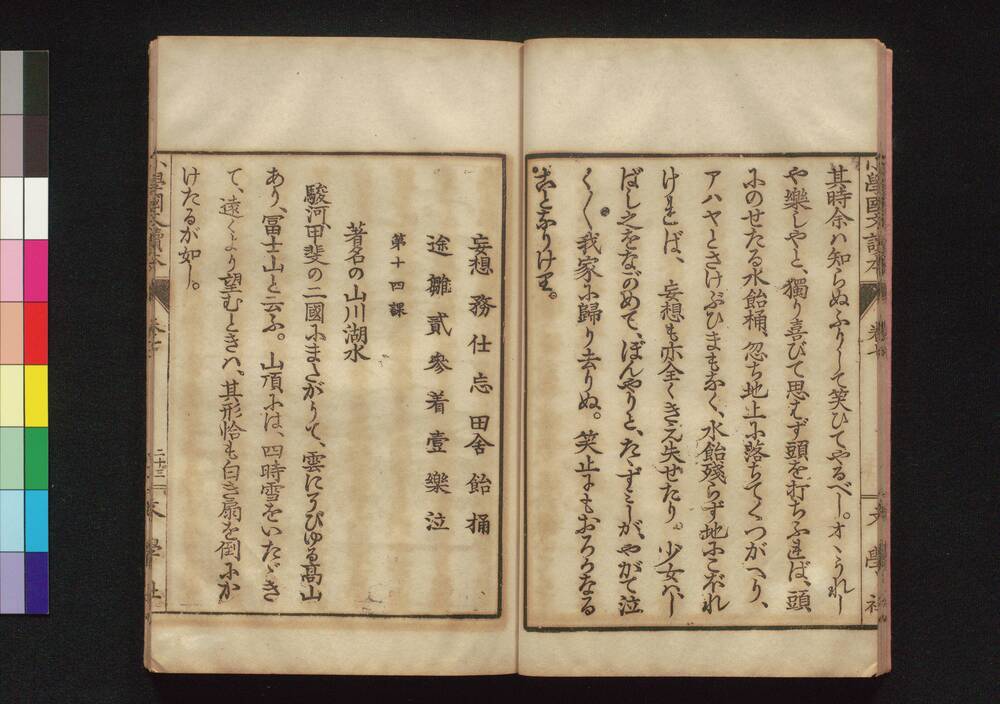 其時余ハ知らぬふりして笑ひてやるべし。オヽうれし
や樂しやと、獨り喜びて思はず頭を打ちふれば、頭
にのせたる水飴桶、忽ち地上に落ちてくつがへり、
アハヤとさけぶひまもなく、水飴殘らず地にこぼれ
ければ、妄想も亦全くきえ失せたり。少女ハし
ばし之をながめて、ぼんやりと、たゝずみしが、やがて泣
く〱我家に歸り去りぬ。笑止にもおろろなる
ことなりけり。
妄想務仕忘田舍飴桶
途雛貳參着壹樂泣
第十四課
著名の山川湖水
駿河甲斐の二國にまたがりて、雲にそびゆる高山
あり、冨士山と云ふ。山頂には、四時雪をいたゞき
て、遠くより望むときハ、其形恰も白き扇を倒にか
けたるが如し。
小學國文讀本
卷七
二十三
文學社